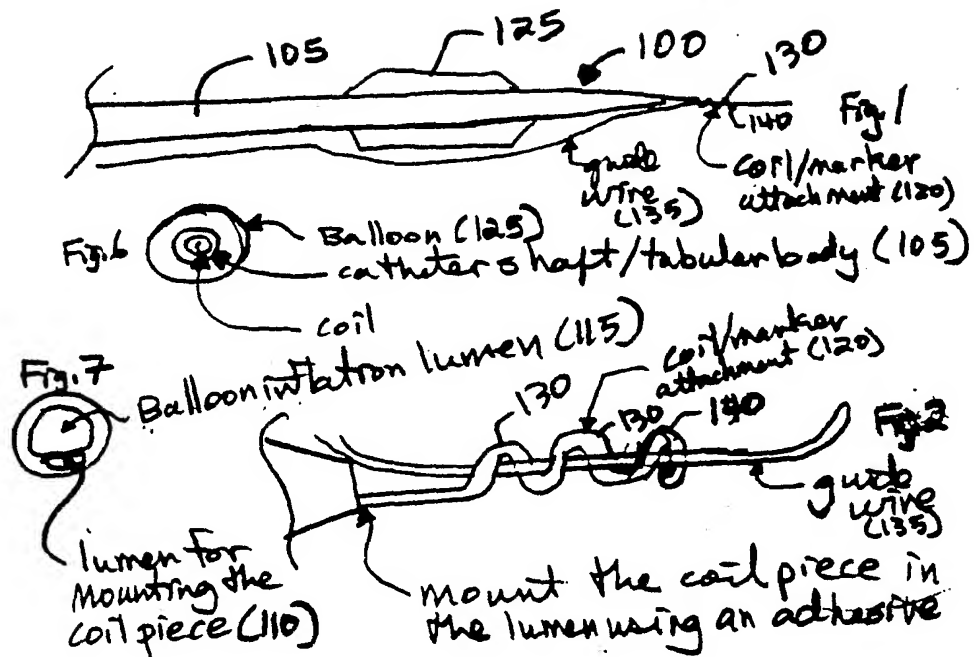 105
125
100
130
140
Fig. 1
guide
wire
(135)
coil/marker
attachment (120)
Fig. 6
Balloon (125)
catheter shaft/tabular body (105)
coil
Fig. 7
Balloon inflation lumen (115)
coil/marker
attachment (120)
130
130
140
guide
wire
(135)
lumen for
mounting the
coil piece (110)
mount the coil piece in
the lumen using an adhesive